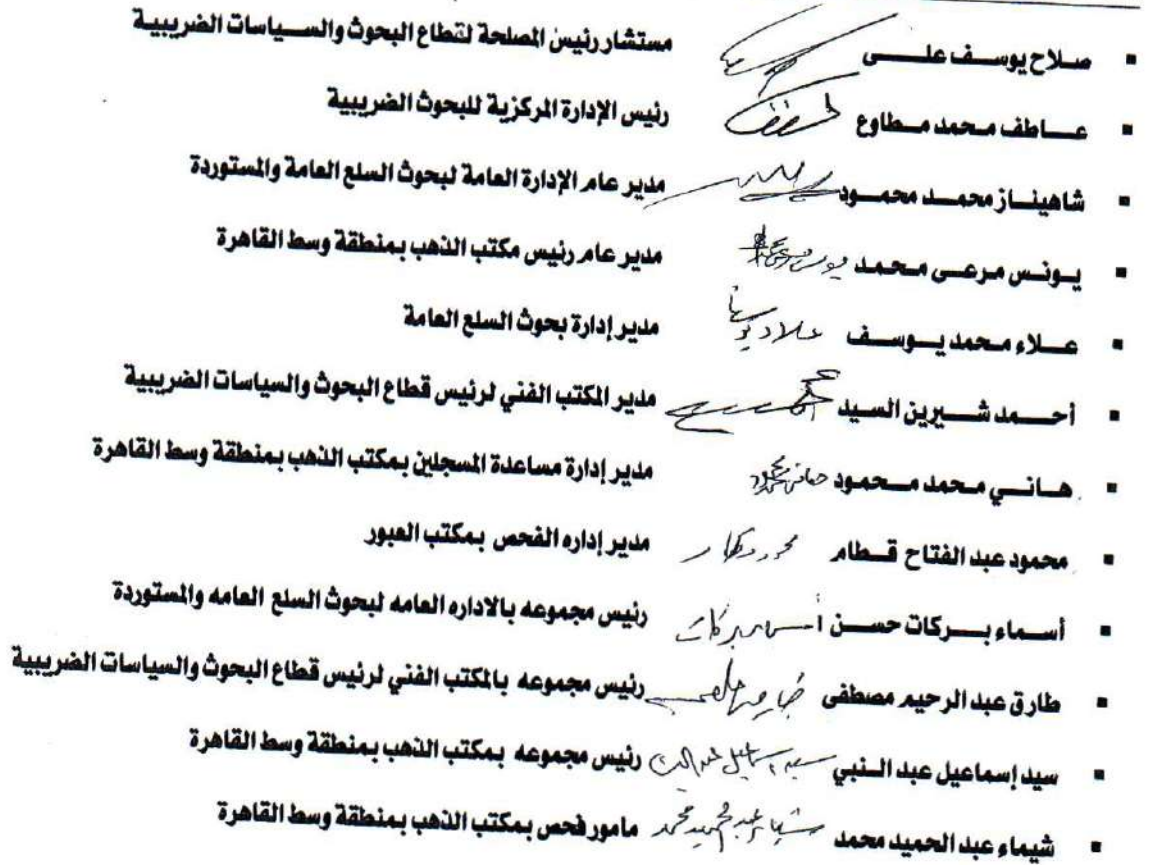 ▪ صلاح يوسف على مستشار رئيس المصلحة لقطاع البحوث والسياسات الضريبية
▪ عاطف محمد مطاوع رئيس الإدارة المركزية للبحوث الضريبية
▪ شاهيناز محمد محمود مدير عام الإدارة العامة لبحوث السلع العامة والمستوردة
▪ يونس مرعى محمد يونس مرعى محمد مدير عام رئيس مكتب الذهب بمنطقة وسط القاهرة
▪ علاء محمد يوسف علاء يوسف مدير إدارة بحوث السلع العامة
▪ أحمد شيرين السيد مدير المكتب الفني لرئيس قطاع البحوث والسياسات الضريبية
▪ هاني محمد محمود هانى محمد محمود مدير إدارة مساعدة المسجلين بمكتب الذهب بمنطقة وسط القاهرة
▪ محمود عبد الفتاح قطام محمود قطام مدير إداره الفحص بمكتب العبور
▪ أسماء بركات حسن أسماء بركات رئيس مجموعه بالاداره العامه لبحوث السلع العامه والمستوردة
▪ طارق عبد الرحيم مصطفى رئيس مجموعه بالمكتب الفني لرئيس قطاع البحوث والسياسات الضريبية
▪ سيد إسماعيل عبد النبي سيد إسماعيل عبد النبى رئيس مجموعه بمكتب الذهب بمنطقة وسط القاهرة
▪ شيماء عبد الحميد محمد شيماء عبد الحميد محمد مامور فحص بمكتب الذهب بمنطقة وسط القاهرة